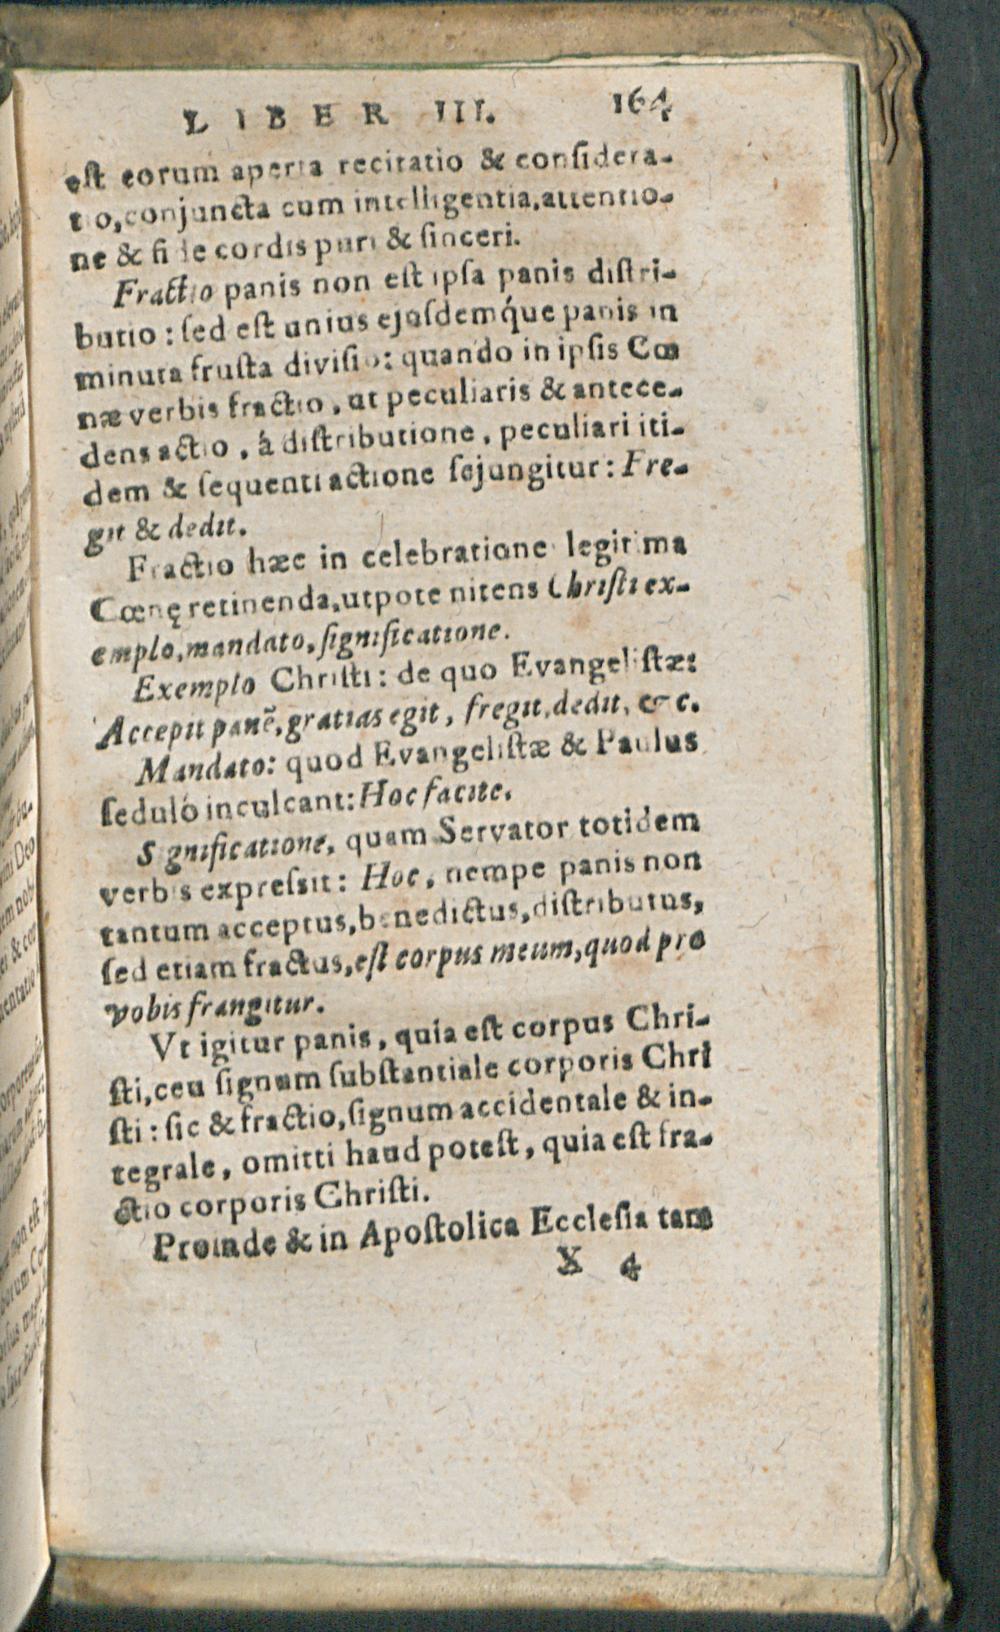 LIBER III. 164
eſt eorum aperta recitatio & conſidera-
tio, conjuncta cum intelligentia, attentio-
ne & fide cordis puri & ſinceri.
Fractio panis non eſt ipſa panis diſtri-
butio: ſed eſt unius ejuſdemq́ue panis in
minuta fruſta diviſio: quando in ipſis Cœ
næ verbis fractio, ut peculiaris & antece-
dens actio, á diſtributione, peculiari iti-
dem & ſequenti actione ſejungitur: Fre-
git & dedit.
Fractio hæc in celebratione legitima
Cœnę retinenda, utpote nitens Chriſti ex-
emplo, mandato, ſignificatione.
Exemplo Chriſti: de quo Evangeliſtæ:
Accepit panẽ, gratias egit, fregit, dedit, &c.
Mandato: quod Evangeliſtæ & Paulus
ſeduló inculcant: Hoc facite.
Significatione, quam Servator totidem
verbis expreſsit: Hoc, nempe panis non
tantum acceptus, benedictus, diſtributus,
ſed etiam fractus, eſt corpus meum, quod pro
vobis frangitur.
Vt igitur panis, quia eſt corpus Chri-
ſti, ceu ſignum ſubſtantiale corporis Chri
ſti: ſic & fractio, ſignum accidentale & in-
tegrale, omitti haud poteſt, quia eſt fra-
ctio corporis Chriſti.
Proinde & in Apoſtolica Eccleſia tam
X 4